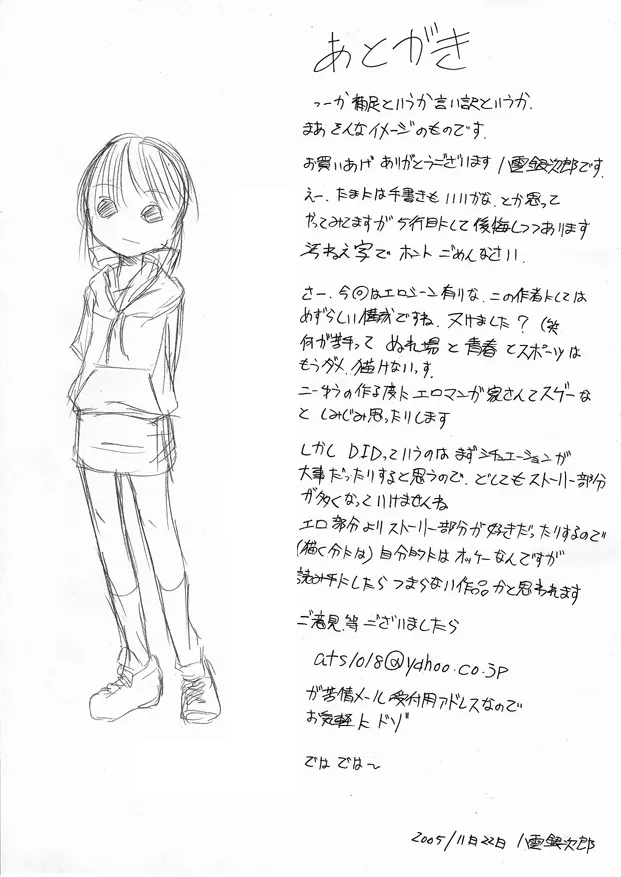 あとがき
つーか補足というか言い訳というか。
まあそんなイメージのものです。
お買いあげ ありがとうございます 八雲銀次郎です。
えー、たまには手書きもいいかな、とか思って
やってみてますが 5行目にして後悔しつつあります
汚ねえ字で ホント ごめんなさい。
さー、今回はエロシーン有りな、この作者にしては
めずらしい構成ですね。ヌけました？(笑
何が苦手って ぬれ場と青春とスポーツは
もうダメ、描けないっす。
こーゆうの作る度に エロマンガ家さんてスゲーな
と しみじみ思ったりします
しかし DIDっていうのは まずシチュエーションが
大事だったりすると思うので、どしてもストーリー部分
が多くなっていけませんね
エロ部分よりストーリー部分が好きだったりするので
(描く分には) 自分的にはオッケーなんですが
読み手にしたら つまらない作品かと思われます
ご意見、等ございましたら
ats1018@yahoo.co.jp
が苦情メール受付用アドレスなので
お気軽に ドゾ
では では〜
2005/11月22日 八雲銀次郎